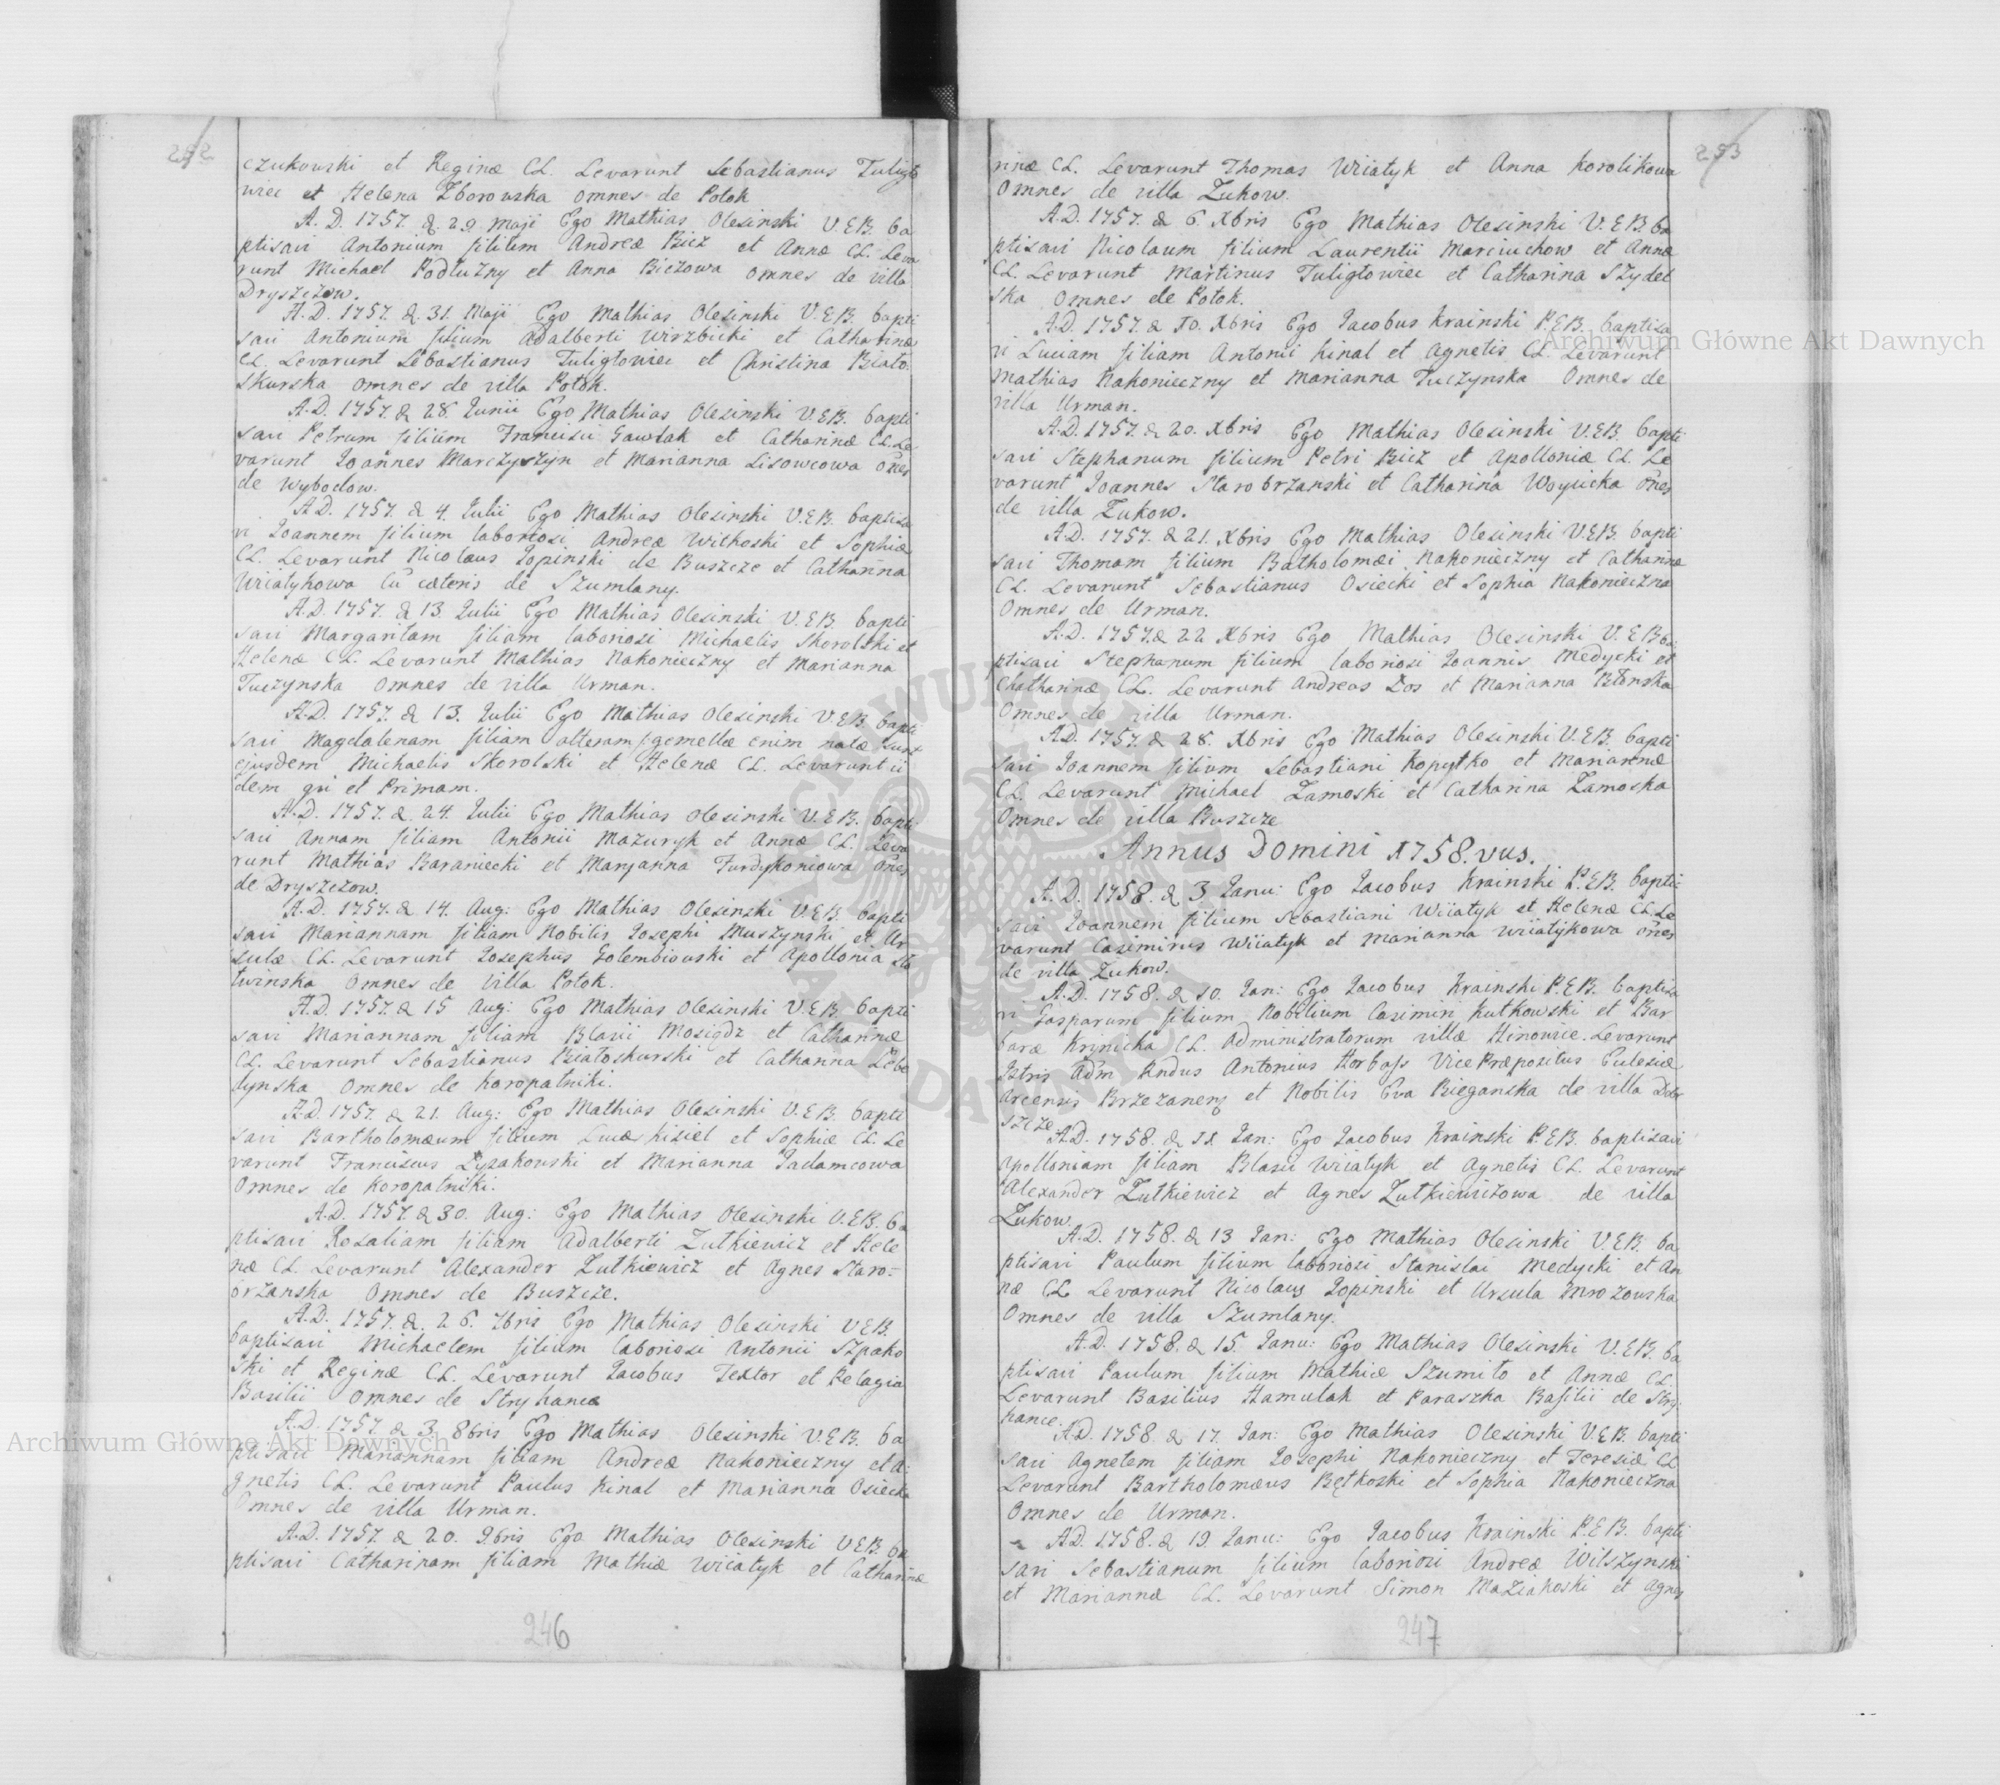 252
czukowski et Reginæ CL. Levarunt Sebastianus Tuligło
wiec et Helena Zborowska omnes de Potok
A. D. 1757. d. 29. Maji Ego Mathias Olesinski V.E.B. ba
ptisavi Antonium filium Andreæ Biez et Annæ CL. Leva
runt Michael Podluzny et Anna Biezowa omnes de villa
Dryszczow.
A.D. 1757. d. 31. Maji Ego Mathias Olesinski V.E.B. bapti
savi Antonium filium Adalberti Wirzbicki et Catharinæ
CL. Levarunt Sebastianus Tuligłowiec et Christina Biało
skurska omnes de villa Potok.
A.D. 1757. d. 28. Junii Ego Mathias Olesinski V.E.B. bapti
savi Petrum filium Francisci Gawlak et Catharinæ CL. Le
varunt Joannes Marczyszyn et Marianna Lisowcowa oñes
de Wybodow.
A.D. 1757 d. 4. Julii Ego Mathias Olesinski V.E.B. baptisa
vi Joannem filium laboriosi Andreæ Witkoski et Sophiæ
CL. Levarunt Nicolaus Łopinski de Buszcze et Catharina
Wiiatykowa cũ cæteris de Szumlany.
A.D. 1757. d. 13. Julii Ego Mathias Olesinski V.E.B. bapti
savi Margaritam filiam laboriosi Michaelis Skorolski et
Helenæ CL. Levarunt Mathias Nakonieczny et Marianna
Tuczynska omnes de villa Urman.
A.D. 1757. d. 13. Julii Ego Mathias Olesinski V.E.B. bapti
savi Magdalenam filiam alteram gemellæ enim natæ sunt
ejusdem Michaelis Skorolski et Helenæ CL. Levarunt ii
dem qui et Primam.
A.D. 1757. d. 24. Julii Ego Mathias Olesinski V.E.B. bapti
savi Annam filiam Antonii Mazuryk et Annæ CL. Leva
runt Mathias Baraniecki et Maryanna Furdykoniowa oñes
de Dryszczow.
A.D. 1757. d. 14. Aug: Ego Mathias Olesinski V.E.B. bapti
savi Mariannam filiam Nobilis Josephi Muszynski et Ur
sulæ CL. Levarunt Josephus Golembiowski et Apollonia Sło
twinska omnes de villa Potok.
A.D. 1757. d. 15 Aug: Ego Mathias Olesinski V.E.B. bapti
savi Mariannam filiam Blasii Mosigdz et Catharinæ
CL. Levarunt Sebastianus Białoskurski et Catharina Lebe
dynska omnes de Koropatniki.
A.D. 1757. d. 21. Aug: Ego Mathias Olesinski V.E.B. bapti
savi Bartholomæum filium Lucæ Kisiel et Sophiæ CL. Le
varunt Franciscus Łyzakowski et Marianna Jadamcowa
omnes de Koropatniki.
A.D. 1757. d. 30. Aug: Ego Mathias Olesinski V.E.B. ba
ptisavi Rozaliam filiam Adalberti Zutkiewicz et Hele
næ CL. Levarunt Alexander Zutkiewicz et Agnes Staro=
brzanska omnes de Buszcze.
A.D. 1757. d. 26. 7bris Ego Mathias Olesinski V.E.B.
baptisavi Michaelem filium laboriosi Antonii Szpako
ski et Reginæ CL. Levarunt Jacobus Textor et Pelagia
Basilii omnes de Stryhance
A.D. 1757. d. 3. 8bris Ego Mathias Olesinski V.E.B. ba
ptisavi Mariannam filiam Andreæ Nakonieczny et A:
gnetis CL. Levarunt Paulus Kinal et Marianna Osiecka
omnes de villa Urman.
A.D. 1757. d. 20. 9bris Ego Mathias Olesinski V.E.B. ba
ptisavi Catharinam filiam Mathiæ Wiiatyk et Catharinæ
246
253
rinæ CL. Levarunt Thomas Wiiatyk et Anna Korolikowa
omnes de villa Zukow.
A.D. 1757. d. 6. Xbris Ego Mathias Olesinski V.E.B. ba
ptisavi Nicolaum filium Laurentii Marciuchow et Annæ
CL. Levarunt Martinus Tuligłowiec et Catharina Szydel
ska omnes de Potok.
A.D. 1757. d. 10. Xbris Ego Jacobus Krainski P.E.B. baptisa
vi Luciam filiam Antonii Kinal et Agnetis CL. Levarunt
Mathias Nakonieczny et Marianna Tuczynska omnes de
villa Urman.
A.D. 1757. d. 20. Xbris Ego Mathias Olesinski V.E.B. bapti
savi Stephanum filium Petri Biez et Apolloniæ CL. Le
varunt Joannes Starobrzanski et Catharina Woyicka oñes
de villa Zukow.
A.D. 1757. d. 21. Xbris Ego Mathias Olesinski V.E.B. bapti
savi Thomam filium Bartholomæi Nakonieczny et Catharinæ
CL. Levarunt Sebastianus Osiecki et Sophia Nakonieczna
omnes de Urman.
A.D. 1757. d. 22 Xbris Ego Mathias Olesinski V.E.B. ba:
ptisavi Stephanum filium laboriosi Joannis Medycki et
Chatharinæ CL. Levarunt Andreas Dos et Marianna Błonska
omnes de villa Urman.
A.D. 1757. d. 28. Xbris Ego Mathias Olesinski V.E.B. bapti
savi Joannem filium Sebastiani Kopytko et Mariannæ
CL. Levarunt Michael Zamoski et Catharina Zamoska
omnes de villa Buszcze
Annus Domini 1758.vus.
A.D. 1758. d. 3. Janu: Ego Jacobus Krainski P.E.B. bapti=
savi Joannem filium Sebastiani Wiiatyk et Helenæ CL. Le
varunt Casimirus Wiiatyk et Marianna Wiiatykowa oñes
de villa Zukow.
A.D. 1758. d. 10. Jan: Ego Jacobus Krainski P.E.B. baptisa
vi Gasparum filium Nobilium Casimiri Rutkowski et Bar
baræ Krynicka CL. Administratorum villæ Hinowice. Levarunt
Illtris Adm Rndus Antonius Horbass Vice Præpositus Ecclesiæ
Arcensis Brzezanens et Nobilis Eva Bieganska de villa Dub
szcze.
A.D. 1758. d. 11. Jan: Ego Jacobus Krainski P.E.B. baptisavi
Apolloniam filiam Blasii Wiiatyk et Agnetis CL. Levarunt
Alexander Zutkiewicz et Agnes Zutkiewiczowa de villa
Zukow.
A.D. 1758. d. 13 Jan: Ego Mathias Olesinski V.E.B. ba
ptisavi Paulum filium laboriosi Stanislai Medycki et An
næ CL Levarunt Nicolaus Łopinski et Ursula Mrozowska
omnes de villa Szumlany.
A.D. 1758. d. 15. Janu: Ego Mathias Olesinski V.E.B. ba
ptisavi Paulum filium Mathiæ Szumilo et Annæ CL.
Levarunt Basilius Hamulak et Paraszka Basilii de Stry
hance.
A.D. 1758 d. 17. Jan: Ego Mathias Olesinski V.E.B. bapti
savi Agnetem filiam Josephi Nakonieczny et Teresiæ CL
Levarunt Bartholomæus Bętkoski et Sophia Nakonieczna
omnes de Urman.
A.D. 1758. d. 19. Janu: Ego Jacobus Krainski P.E.B. bapti
savi Sebastianum filium laboriosi Andreæ Wilszynski
et Mariannæ CL. Levarunt Simon Maziakoski et Agnes
247
Archiwum Główne Akt Dawnych
Archiwum Główne Akt Dawnych